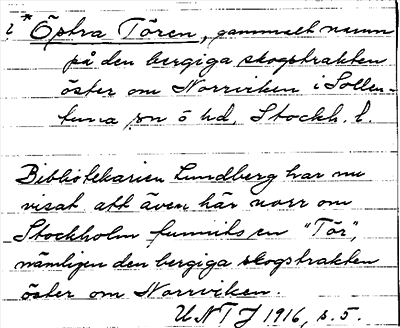 i *Östra Tören, gammalt namn
på den bergiga skogstrakten
öster om Norrviken i Sollen-
tuna sn o hd, Stockh. l.
Bibliotekarien Lundberg har nu
visat att även här norr om
Stockholm funnits en "Tör",
nämligen den bergiga skogstrakten
öster om Norrviken.
UNTJ 1916, s. 5.